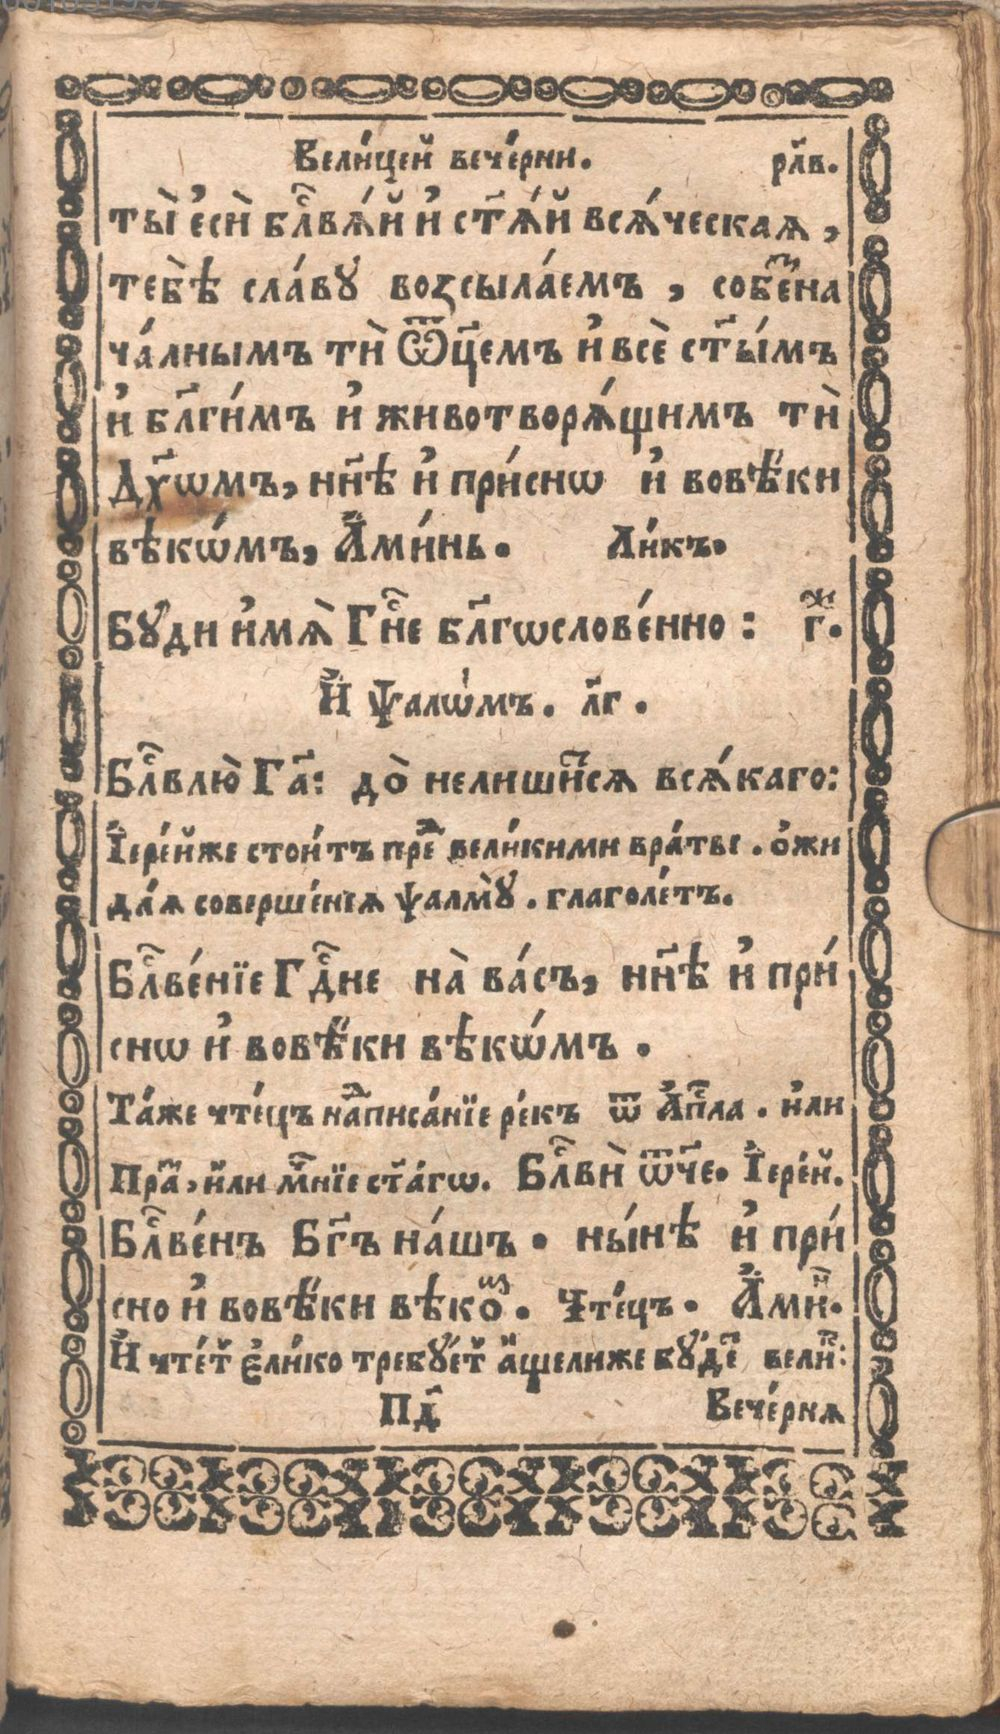 Вели́цей вече́рни. рл҃в.
ты̀ є҆сѝ бл҃гвѧ́й и҆ ст҃ѧ́й всѧ́ческаѧ,
тебѣ̀ сла́вꙋ возсыла́емъ, собез̾нач
ча́лнымъ тѝ Ѿц҃емъ и҆ всѐ ст҃ы́мъ
и҆ бл҃ги́мъ и҆ животворѧ́щимъ тѝ
Дх҃ѡмъ, нн҃ѣ и҆ при́снѡ и҆ вовѣ́ки
вѣкѡ́мъ, А҆ми́нь. Ли́къ.
Бꙋ́ди и҆мѧ̀ Гн҃е бл҃гѡслове́нно: г҃ж.
И҆ ѱалѡ́мъ. лг҃.
Бл҃влю̀ Гⷭ҇а: до̀ нелиша́тсѧ всѧ́каго:
І҆ере́йже стои́тъ преⷣ вели́кими вра́ты. ѻ҆жи
да́ѧ соверше́нїѧ ѱалмꙋ̀. глаголе́тъ.
Бл҃ве́нїе Гдⷭ҇не на̀ ва́съ, нн҃ѣ и҆ при́
снѡ и҆ вовѣ́ки вѣкѡ́мъ.
Та́же чте́цъ наⷣписа́нїе ре́къ ѿ А҆пⷭ҇ла. и҆ли
Прⷪ҇, и҆ли мч҃нїе ст҃а́гѡ. Бл҃вѝ ѿч҃е. І҆ере́й.
Бл҃ве́нъ Бг҃ъ на́шъ. ны́нѣ и҆ при́
сно и҆ вовѣ́ки вѣкоⷨ. Чте́цъ. А҆миⷩ҇.
И҆ чте́т є҆ли́ко требꙋ́ет а҆́щелиже бꙋ́деⷮ велиⷦ:
Пд҃ Вече́рнѧ